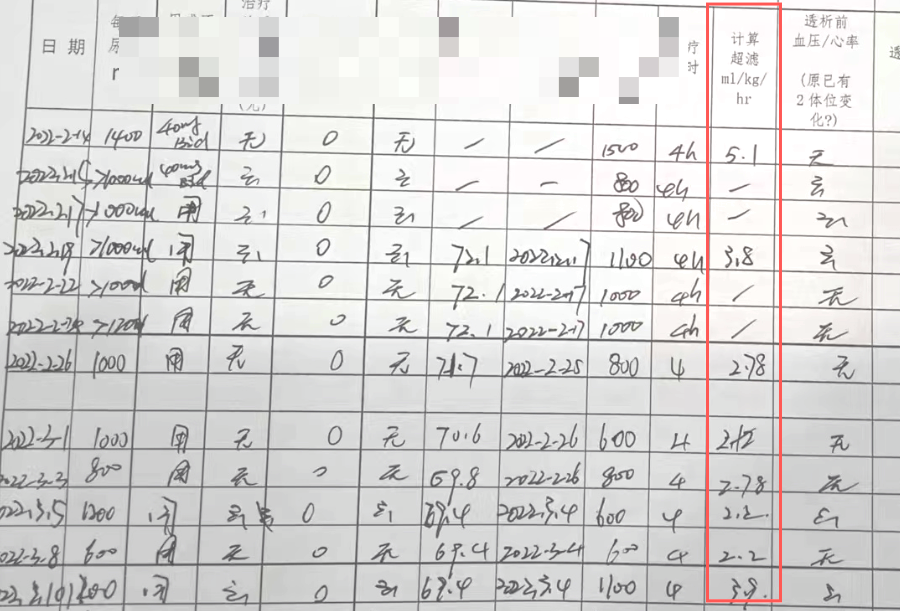 日 期
每
尿
治疗
(无)
疗
时
计算
超滤
ml/kg/
hr
透析前
血压/心率
(原已有
2体位变
化?)
透
2022-2-14 1400 40mg Bid 无 0 无 / / 1500 4h 5.1 无
2022.2.15 >1000ml 40mg Bid 无 0 无 / - 800 4h / 无
2022.2.17 >1000ml 同 无 0 无 / / 800 4h - 无
2022.2.19 >1000ml 同 无 0 无 72.1 2022.2.17 1100 4h 3.8 无
2022-2-22 >1000 同 无 0 无 72.1 2022-2-17 1000 4h / 无
2022-2-24 >1200 同 无 0 无 72.1 2022-2-17 1000 4h / 无
2022-2-26 1000 同 无 0 无 71.7 2022-2-25 800 4 2.78 无
2022-3-1 1000 同 无 0 无 70.6 2022-2-26 600 4 2.12 无
2022.3.3 800 同 无 0 无 69.8 2022-2-26 800 4 2.78 无
2022.3.5 1200 同 无 0 无 69.4 2022.3.4 600 4 2.2 无
2022-3-8 600 同 无 0 无 69.4 2022-3-4 600 4 2.2 无
同 无 0 无 69.4 2022.3.4 1100 4 3.9 无